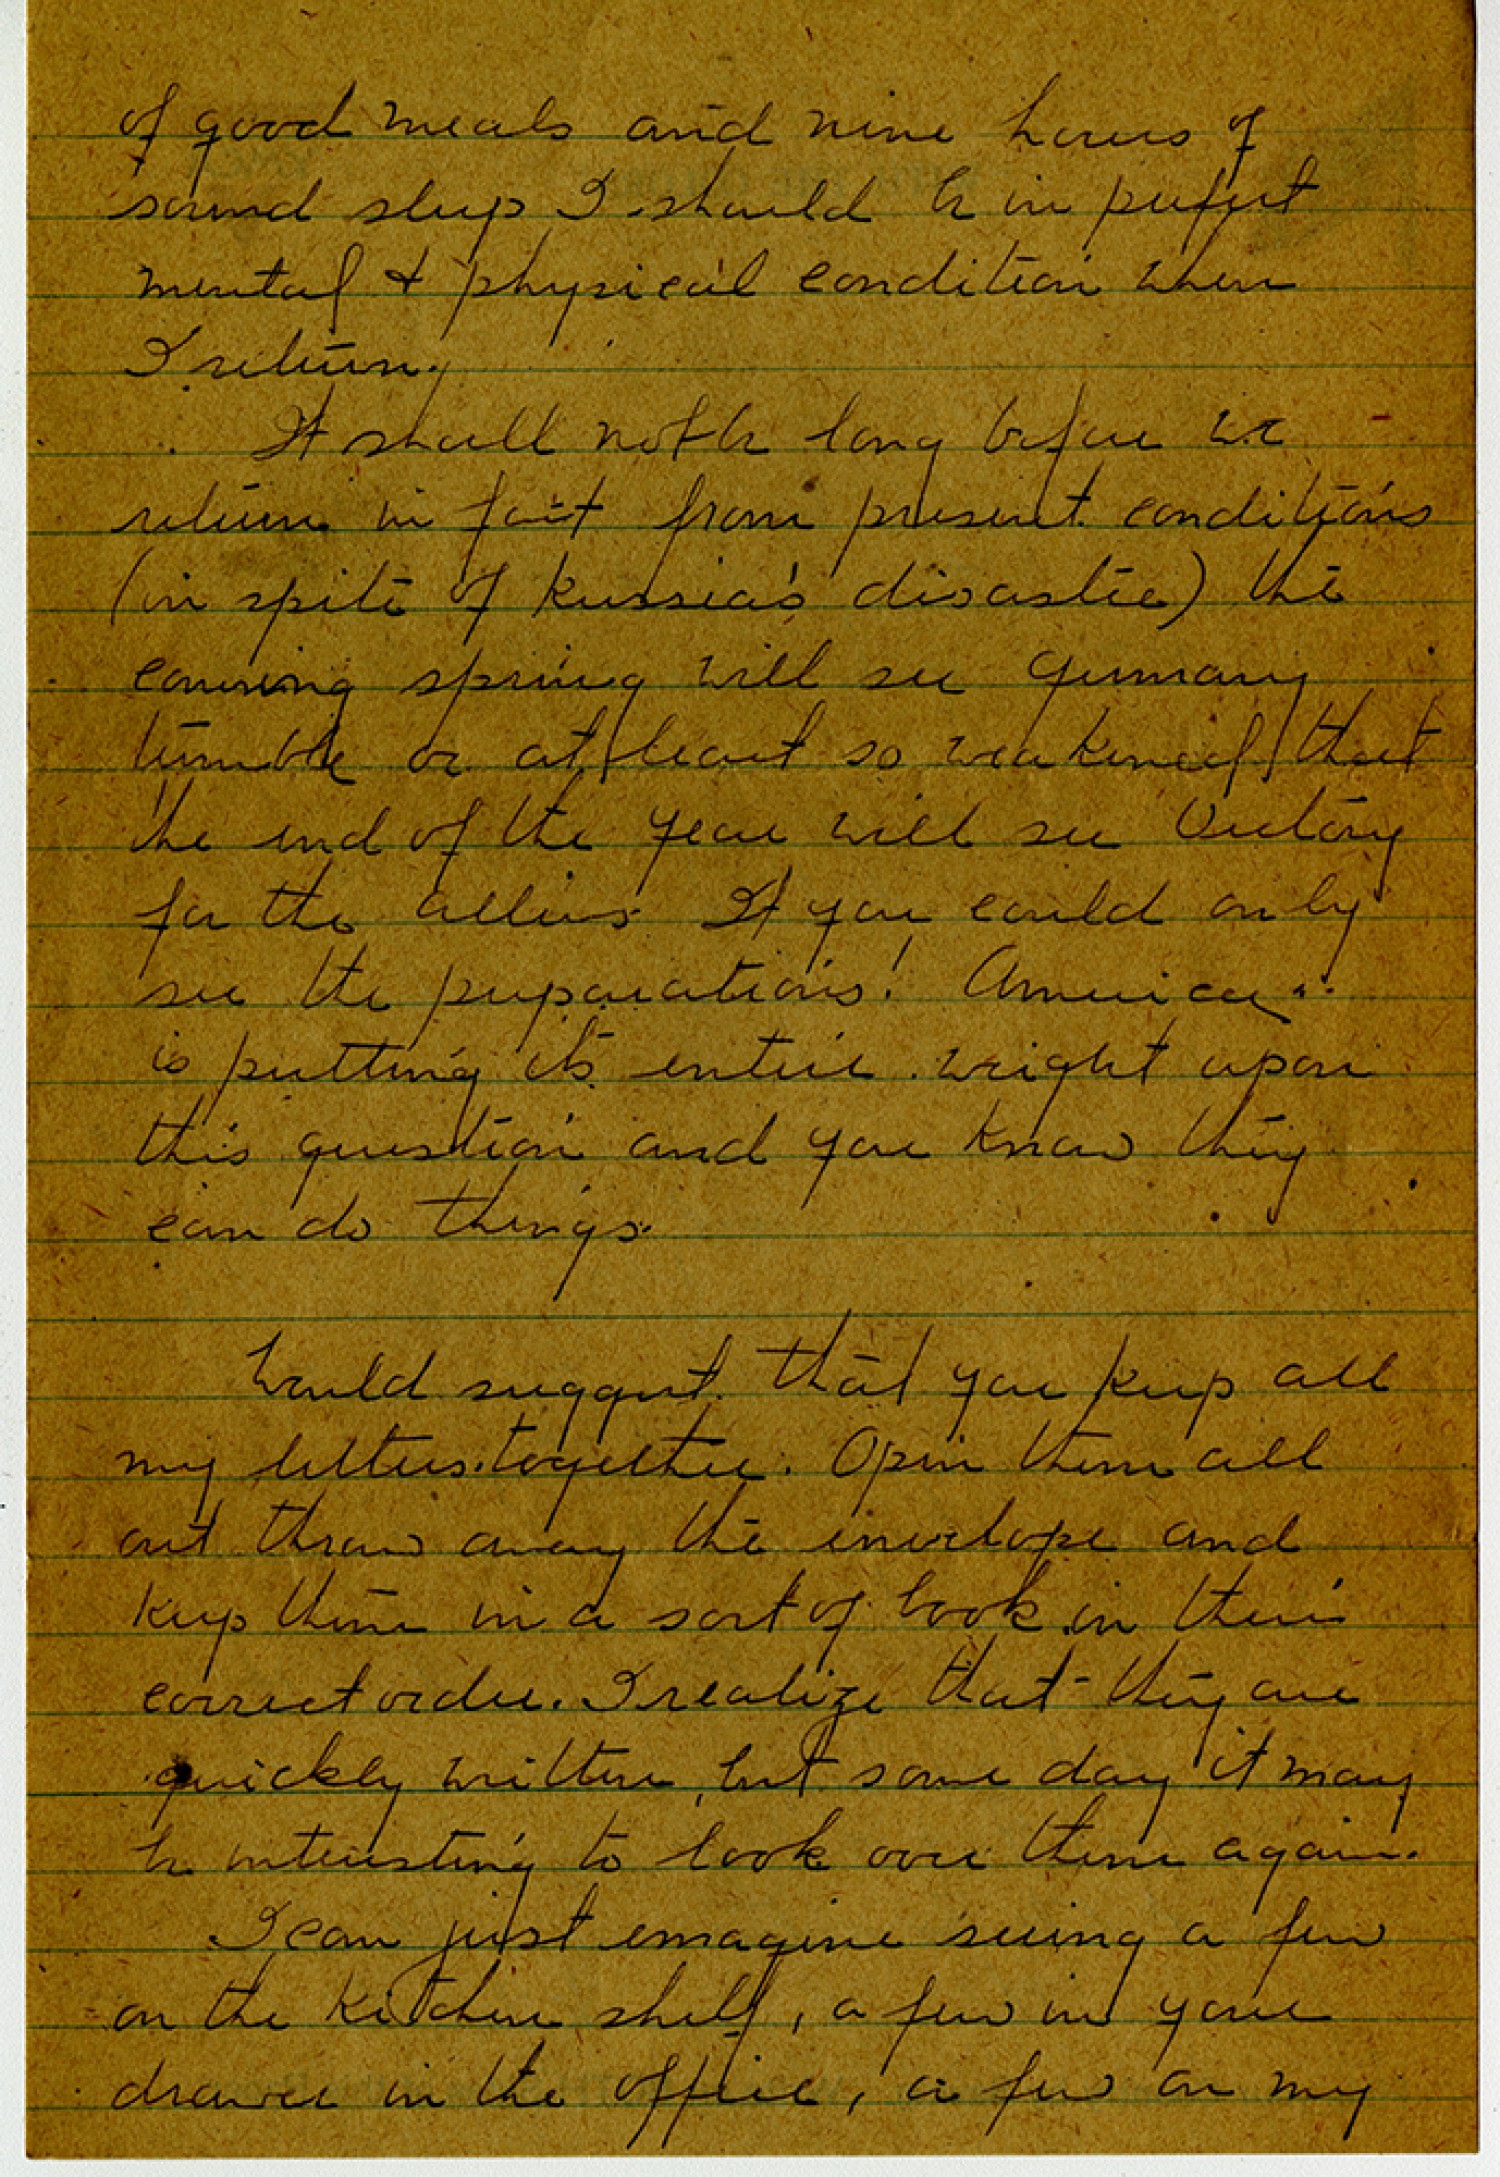 of good meals and nine hours of
sound sleep I should be in perfect
mental & physical condition when
I return.
It shall not be long before we
return in fact from present conditions
(in spite of Russia's disaster) the
coming spring will see Germany
tumble or at least so weakened that
the end of the year will see Victory
for the allies. If you could only
see the preparations! America
is putting its entire weight upon
this question and you know they
can do things.
Would suggest that you keep all
my letters together. Open them all
out throw away the envelope and
keep them in a sort of book in their
correct order. I realize that they are
quickly written, but some day it may
be interesting to look over them again.
I can just emagine seeing a few
on the kitchen shelf, a few in your
drawer in the office, a few on my